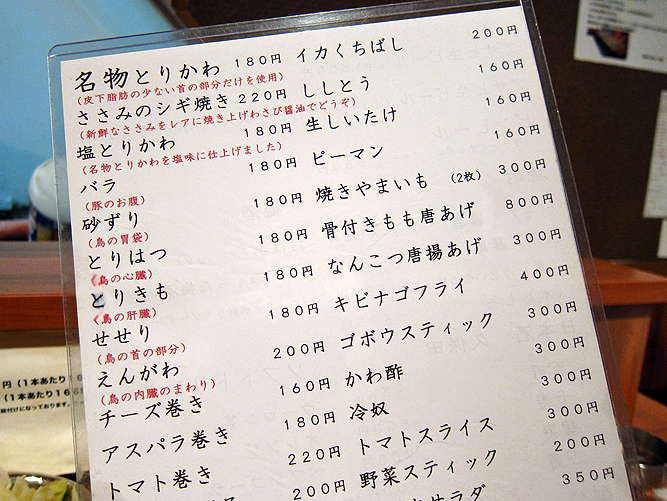 名物とりかわ 180円 イカくちばし 200円
(皮下脂肪の少ない首の部分だけを使用)
ささみのシギ焼き 220円 ししとう 160円
(新鮮なささみをレアに焼き上げわさび醤油でどうぞ)
塩とりかわ 180円 生しいたけ 160円
(名物とりかわを塩味に仕上げました)
バラ 180円 ピーマン 160円
(豚のお腹)
砂ずり 180円 焼きやまいも (2枚) 300円
(鳥の胃袋)
とりはつ 180円 骨付きもも唐あげ 800円
(鳥の心臓)
とりきも 180円 なんこつ唐揚あげ 300円
(鳥の肝臓)
せせり 180円 キビナゴフライ 400円
(鳥の首の部分)
えんがわ 200円 ゴボウスティック 300円
(鳥の内臓のまわり)
チーズ巻き 160円 かわ酢 300円
アスパラ巻き 180円 冷奴 300円
トマト巻き 220円 トマトスライス 300円
200円 野菜スティック 200円
サラダ 350円
円(1本あたり16
(1本あたり166
味付けになっております。